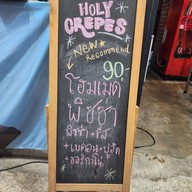 HOLY
CREPES
New
Recommend
90.
โฮมเมด
พิซซ่า
พิซซ่า + ชีส
+ เบคอน + ปูอัด
+ ออริกาโน